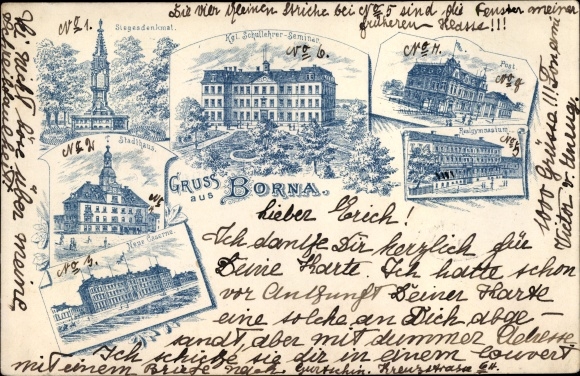 Die vier kleinen Striche bei No 5 sind die Fenster meiner
früheren Klasse!!!
No 1.
Siegesdenkmal.
Kgl. Schullehrer-Seminar.
No 6.
No 4.
Post.
No 2.
Stadthaus.
Realgymnasium.
No 5
Neue Caserne.
No 3.
GRUSS
aus
BORNA.
lieber Erich!
Ich danke Dir herzlich für
Deine Karte. Ich hatte schon
vor Ankunft Deiner Karte
eine solche an Dich abge-
sandt, aber mit dummer Adresse.
Ich schicke sie dir in einem Couvert
mit einem Briefe nach
Kreuzstrasse 64.
Sei nicht böse über meine
1000 Grüsse!!! Von
Victor v.